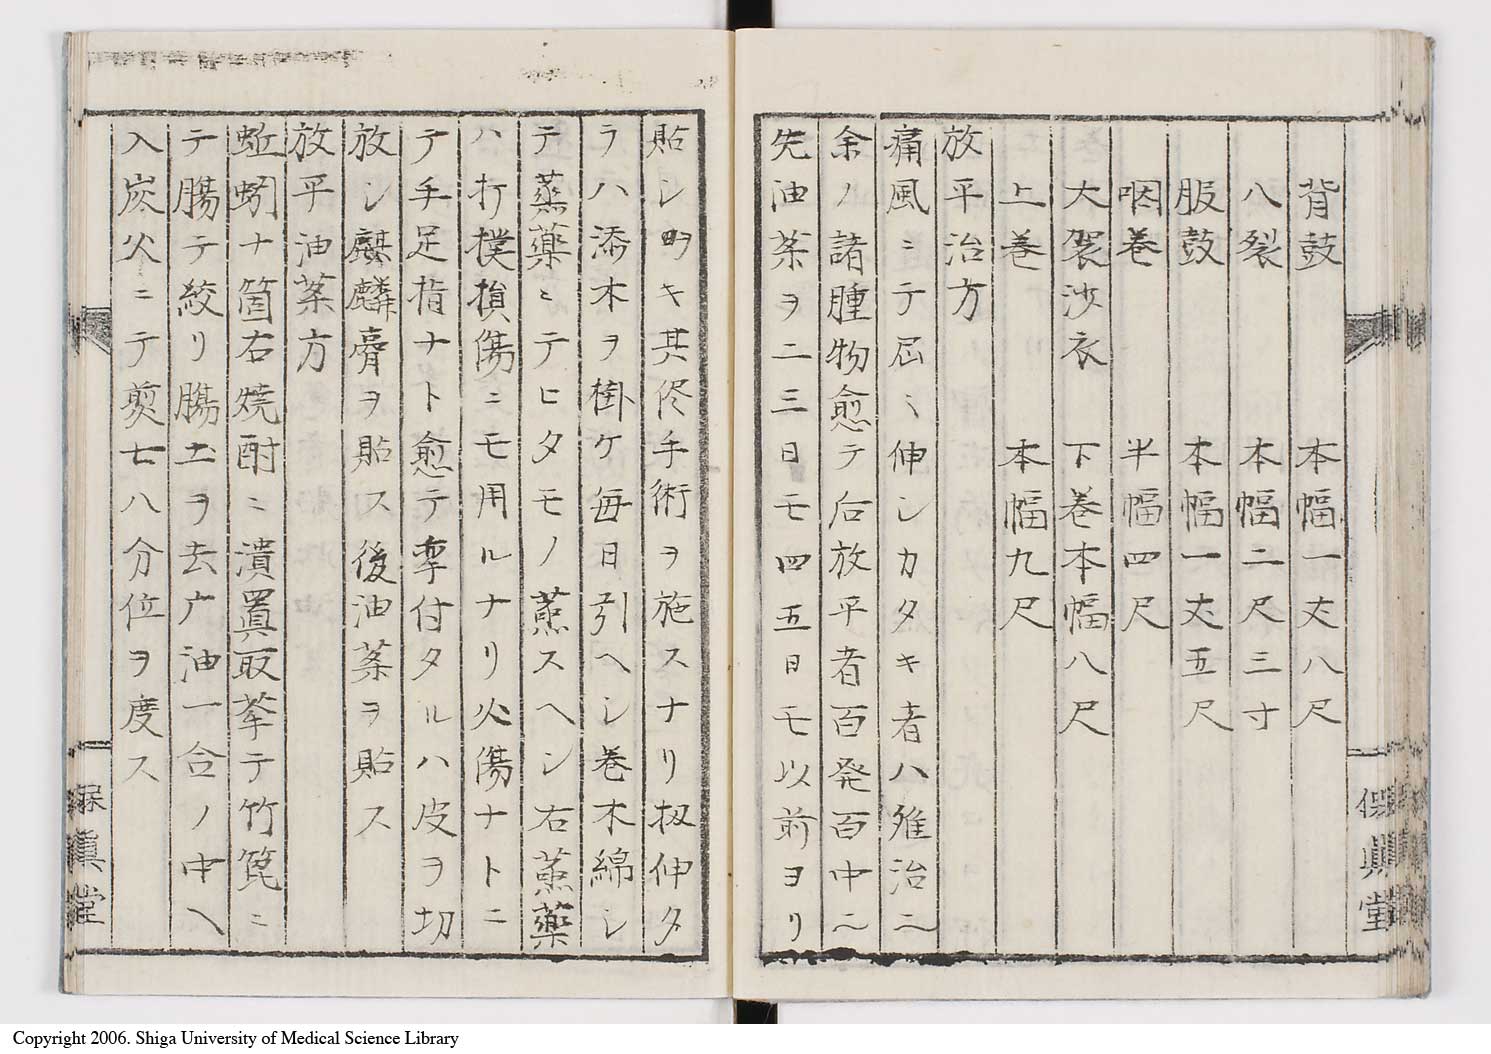 背鼓　本幅一丈八尺
八裂　本幅二尺三寸
股鼓　本幅一丈五尺
咽巻　半幅四尺
大袈沙衣　下巻本幅八尺
上巻　本幅九尺
放平治方
痛風ニテ屈ミ伸シカタキ者ハ雖治ニ
余ノ諸腫物愈テ后放平者百発百中ニ
先油茶ヲ二三日モ四五日モ以前ヨリ
保真堂
貼シ置キ其侭手術ヲ施スナリ扱伸タ
ラハ添木ヲ掛ケ毎日引ヘシ巻木綿シ
テ蒸薬ミテヒタモノ蒸スヘシ右蒸薬
ハ打撲損傷ニモ用ルナリ火傷ナトニ
テ手足指ナト愈テ付タルハ皮ヲ切
放シ麒麟膏ヲ貼ス後油薬ヲ貼ス
放平油薬方
蚯蚓十箇右焼酎ニ漬置取挙テ竹箆ニ
テ腸テ絞リ腸土ヲ去テ油一合ノ中ヘ
入炭火ニテ煎七八分位ヲ度ス
保真堂
Copyright 2006. Shiga University of Medical Science Library